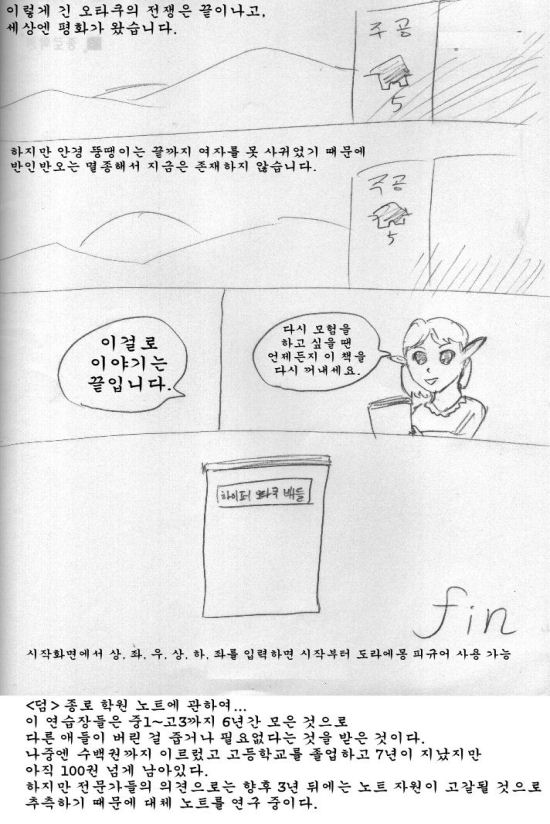 이렇게 긴 오타쿠의 전쟁은 끝이나고,
세상엔 평화가 왔습니다.
주공
5
하지만 안경 뚱땡이는 끝까지 여자를 못 사귀었기 때문에
반인반오는 멸종해서 지금은 존재하지 않습니다.
주공
5
이걸로
이야기는
끝입니다.
다시 모험을
하고 싶을 땐
언제든지 이 책을
다시 꺼내세요.
하이퍼 오타쿠 배틀
fin
시작화면에서 상, 좌, 우, 상, 하, 좌를 입력하면 시작부터 도라에몽 피규어 사용 가능
<덤> 종로 학원 노트에 관하여...
이 연습장들은 중1~고3까지 6년간 모은 것으로
다른 애들이 버린 걸 줍거나 필요없다는 것을 받은 것이다.
나중엔 수백권까지 이르렀고 고등학교를 졸업하고 7년이 지났지만
아직 100권 넘게 남아있다.
하지만 전문가들의 의견으로는 향후 3년 뒤에는 노트 자원이 고갈될 것으로
추측하기 때문에 대체 노트를 연구 중이다.